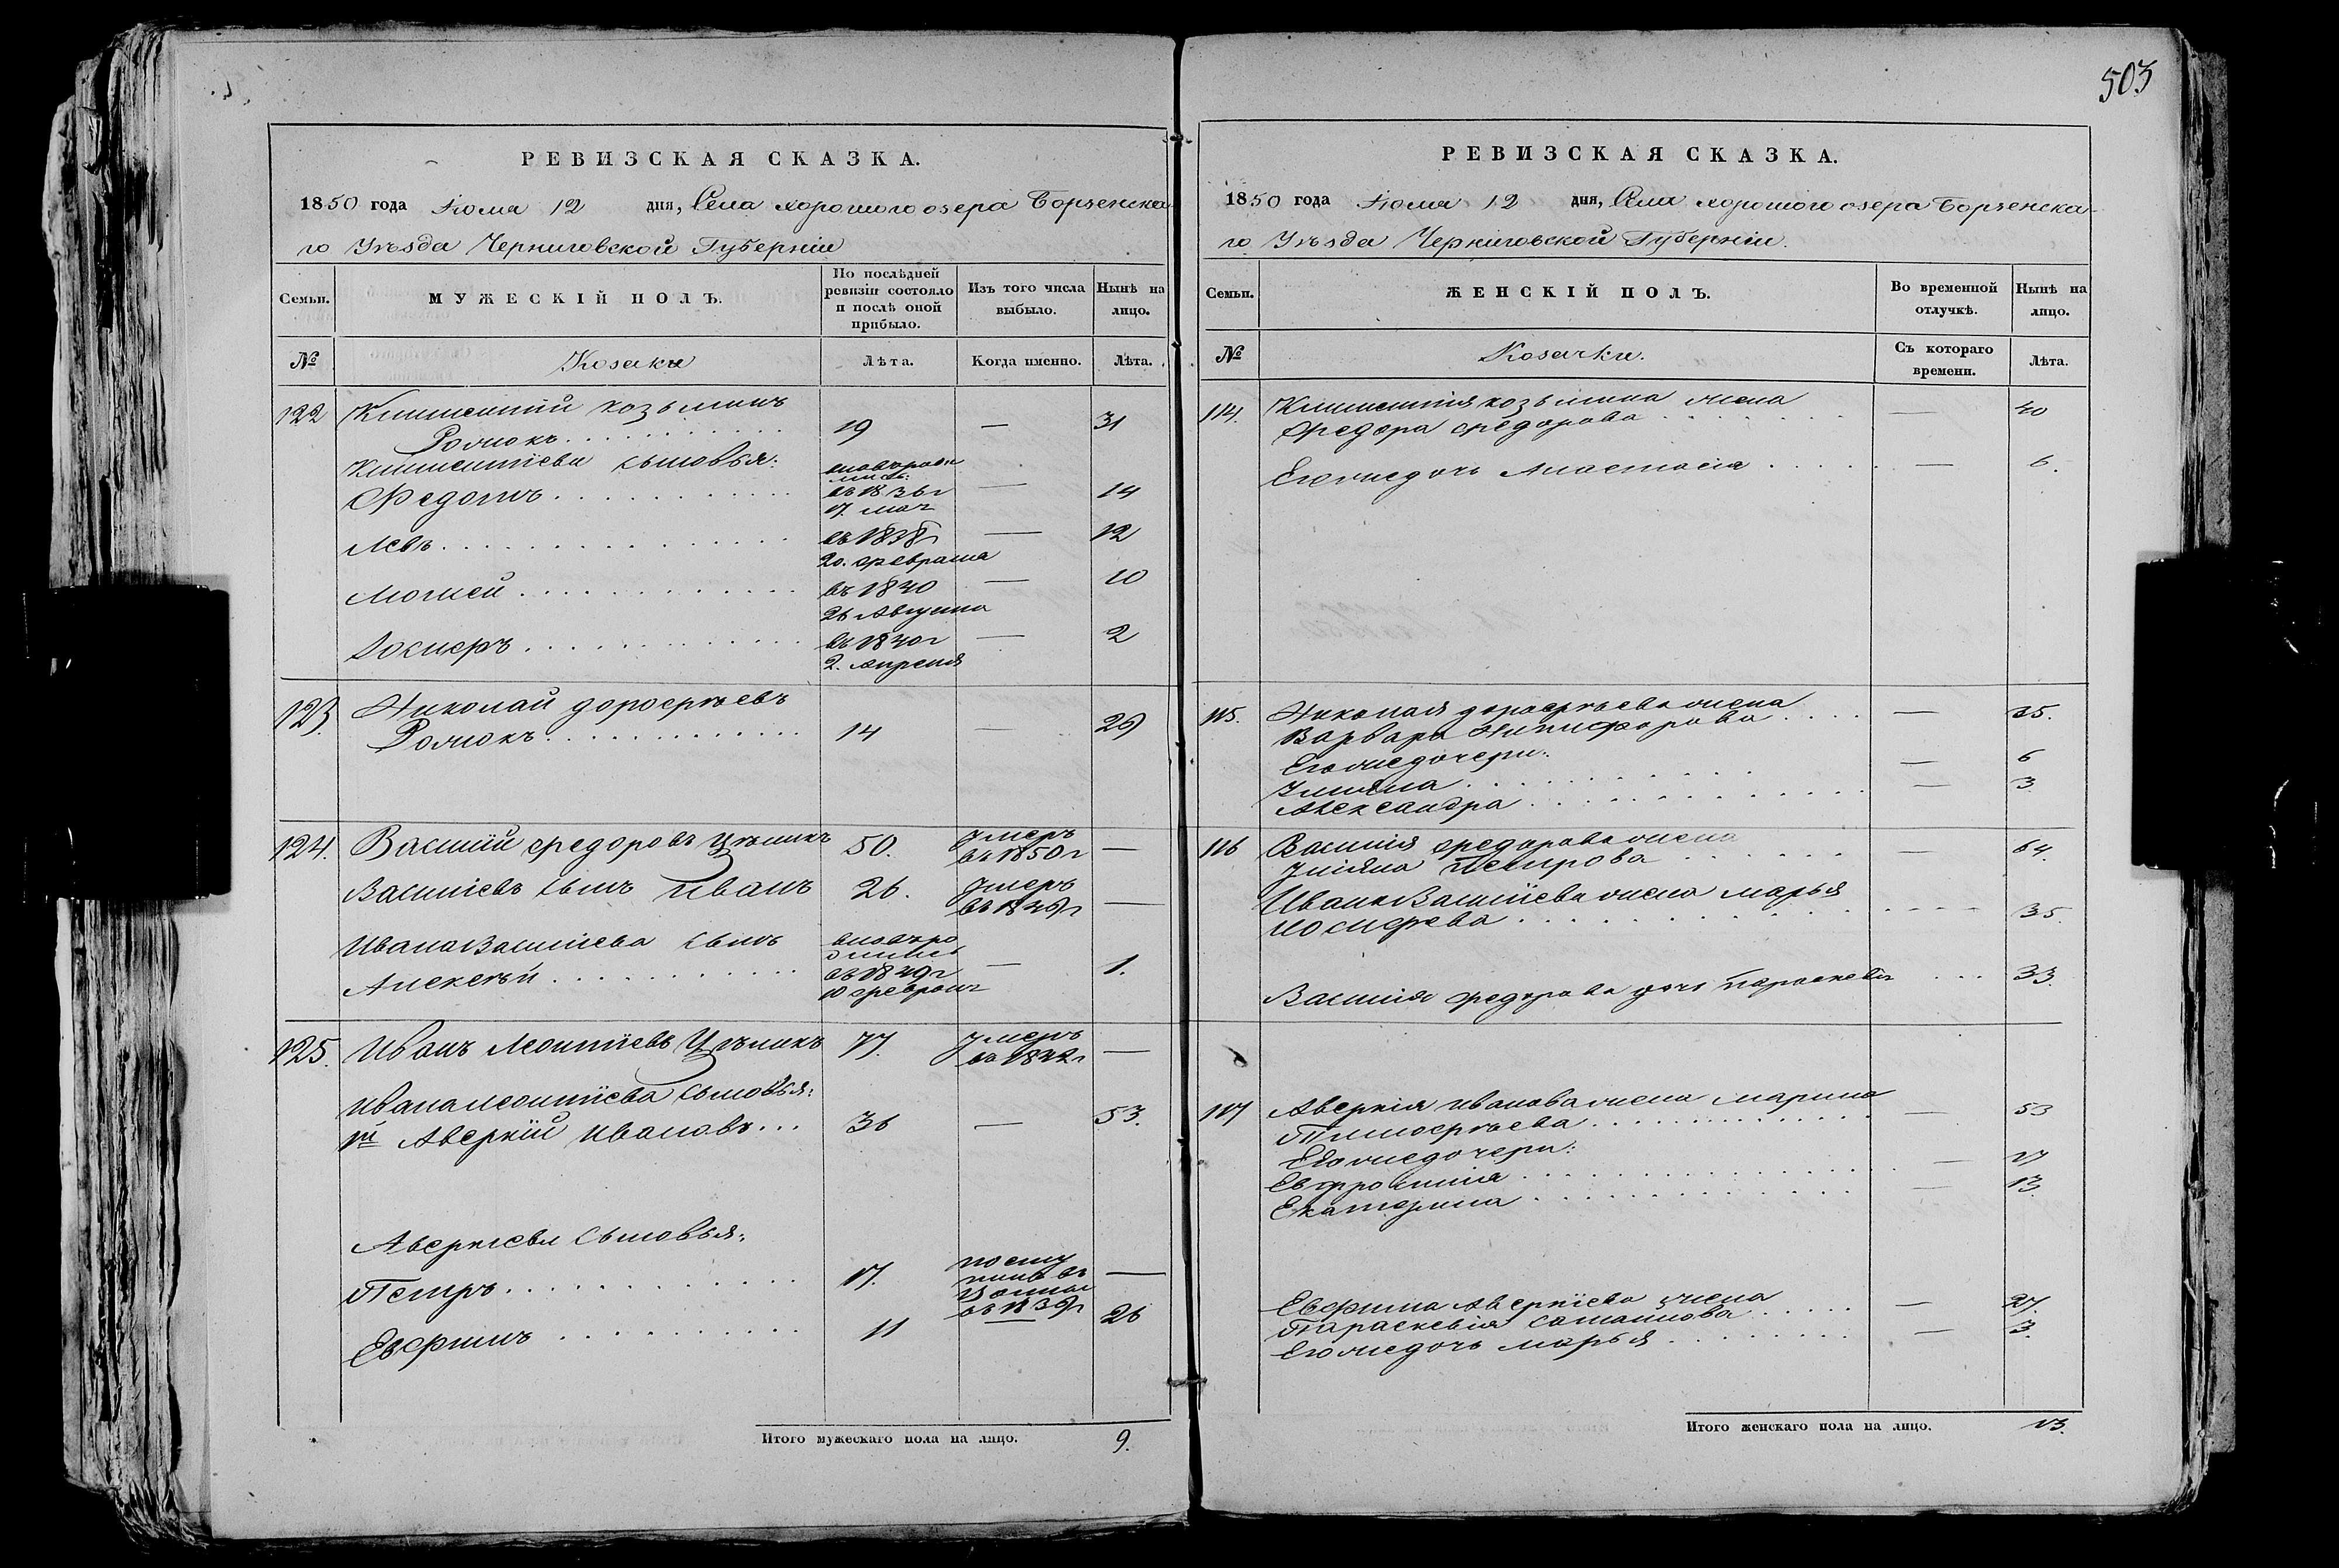 503
РЕВИЗСКАЯ СКАЗКА.
1850 года Июля 12 дня, Села хорошого озера Борзенска-
го Уѣзда Черниговской Губерніи
Семьи.
МУЖЕСКІЙ ПОЛЪ.
По послѣдней ревизіи состояло и послѣ оной прибыло.
Изъ того числа выбыло.
Нынѣ на лицо.
№
Козаки
Лѣта.
Когда именно.
Лѣта.
122 Климентій козьминъ
Ромокъ 19 — 31
Климентіева сыновья: вновърож
Федотъ въ 1836г — 14
17. мая
Левъ въ 1838г — 12
20. февраля
Моисей въ 1840 — 10
26 Августа
Іосифъ въ 1840г — 2
2. апреля
123. Николай дорофѣевъ
Ромокъ 14 — 29
124. Василій федоровъ Цѣликъ 50. Умеръ въ 1850г —
Василіевъ сынъ Иванъ 26. Умеръ въ 1849г —
Ивана Василіева сынъ вновъро
дились
Алексѣй въ 1849г — 1.
10 феврал
125. Иванъ Леонтіевъ Цѣликъ 77. Умеръ въ 1842г —
Ивана леонтіева сыновья:
1й Аверкій Ивановъ 36 — 53.
Аверкіева сыновья:
Петръ 17. посту
пилъ въ
въ 1839г —
Евфимъ 11 — 26
Итого мужескаго пола на лицо. 9.
РЕВИЗСКАЯ СКАЗКА.
1850 года Июля 12 дня, Села хорошого озера Борзенска-
го Уѣзда Черниговской Губерніи.
Семьи.
ЖЕНСКІЙ ПОЛЪ.
Во временной отлучкѣ.
Нынѣ на лицо.
№
Козачки.
Съ котораго времени.
Лѣта.
114. Климентія козьмина жена
Федора федорова — 40
Его же дочь Анастасія — 6.
115. Николая дорофѣева жена
Варвара Никифорова — 35.
Его же дочери:
Уліяна — 6
Александра — 3
116 Василія федорова жена
Уліяна Петрова — 64.
Ивана Василіева жена марья
иосифева 35.
Василія федорова дочь Параскевія 33.
117 Аверкія иванова жена марина
Тимофѣева — 53
Его же дочери:
Евфросинія — 17
Екатерина — 13.
Евфима Аверкіева жена
Параскевія — 27.
Его же дочь марья — 3.
Итого женскаго пола на лицо. 13.